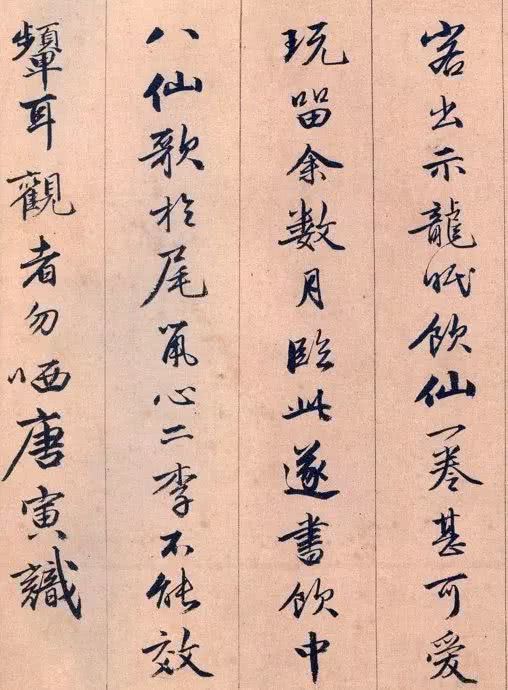 出示龍眠飲仙一卷甚可爱
玩留余数月臨此遂書飲中
八仙歌於尾心二李不能效
顰耳觀者勿哂唐寅識